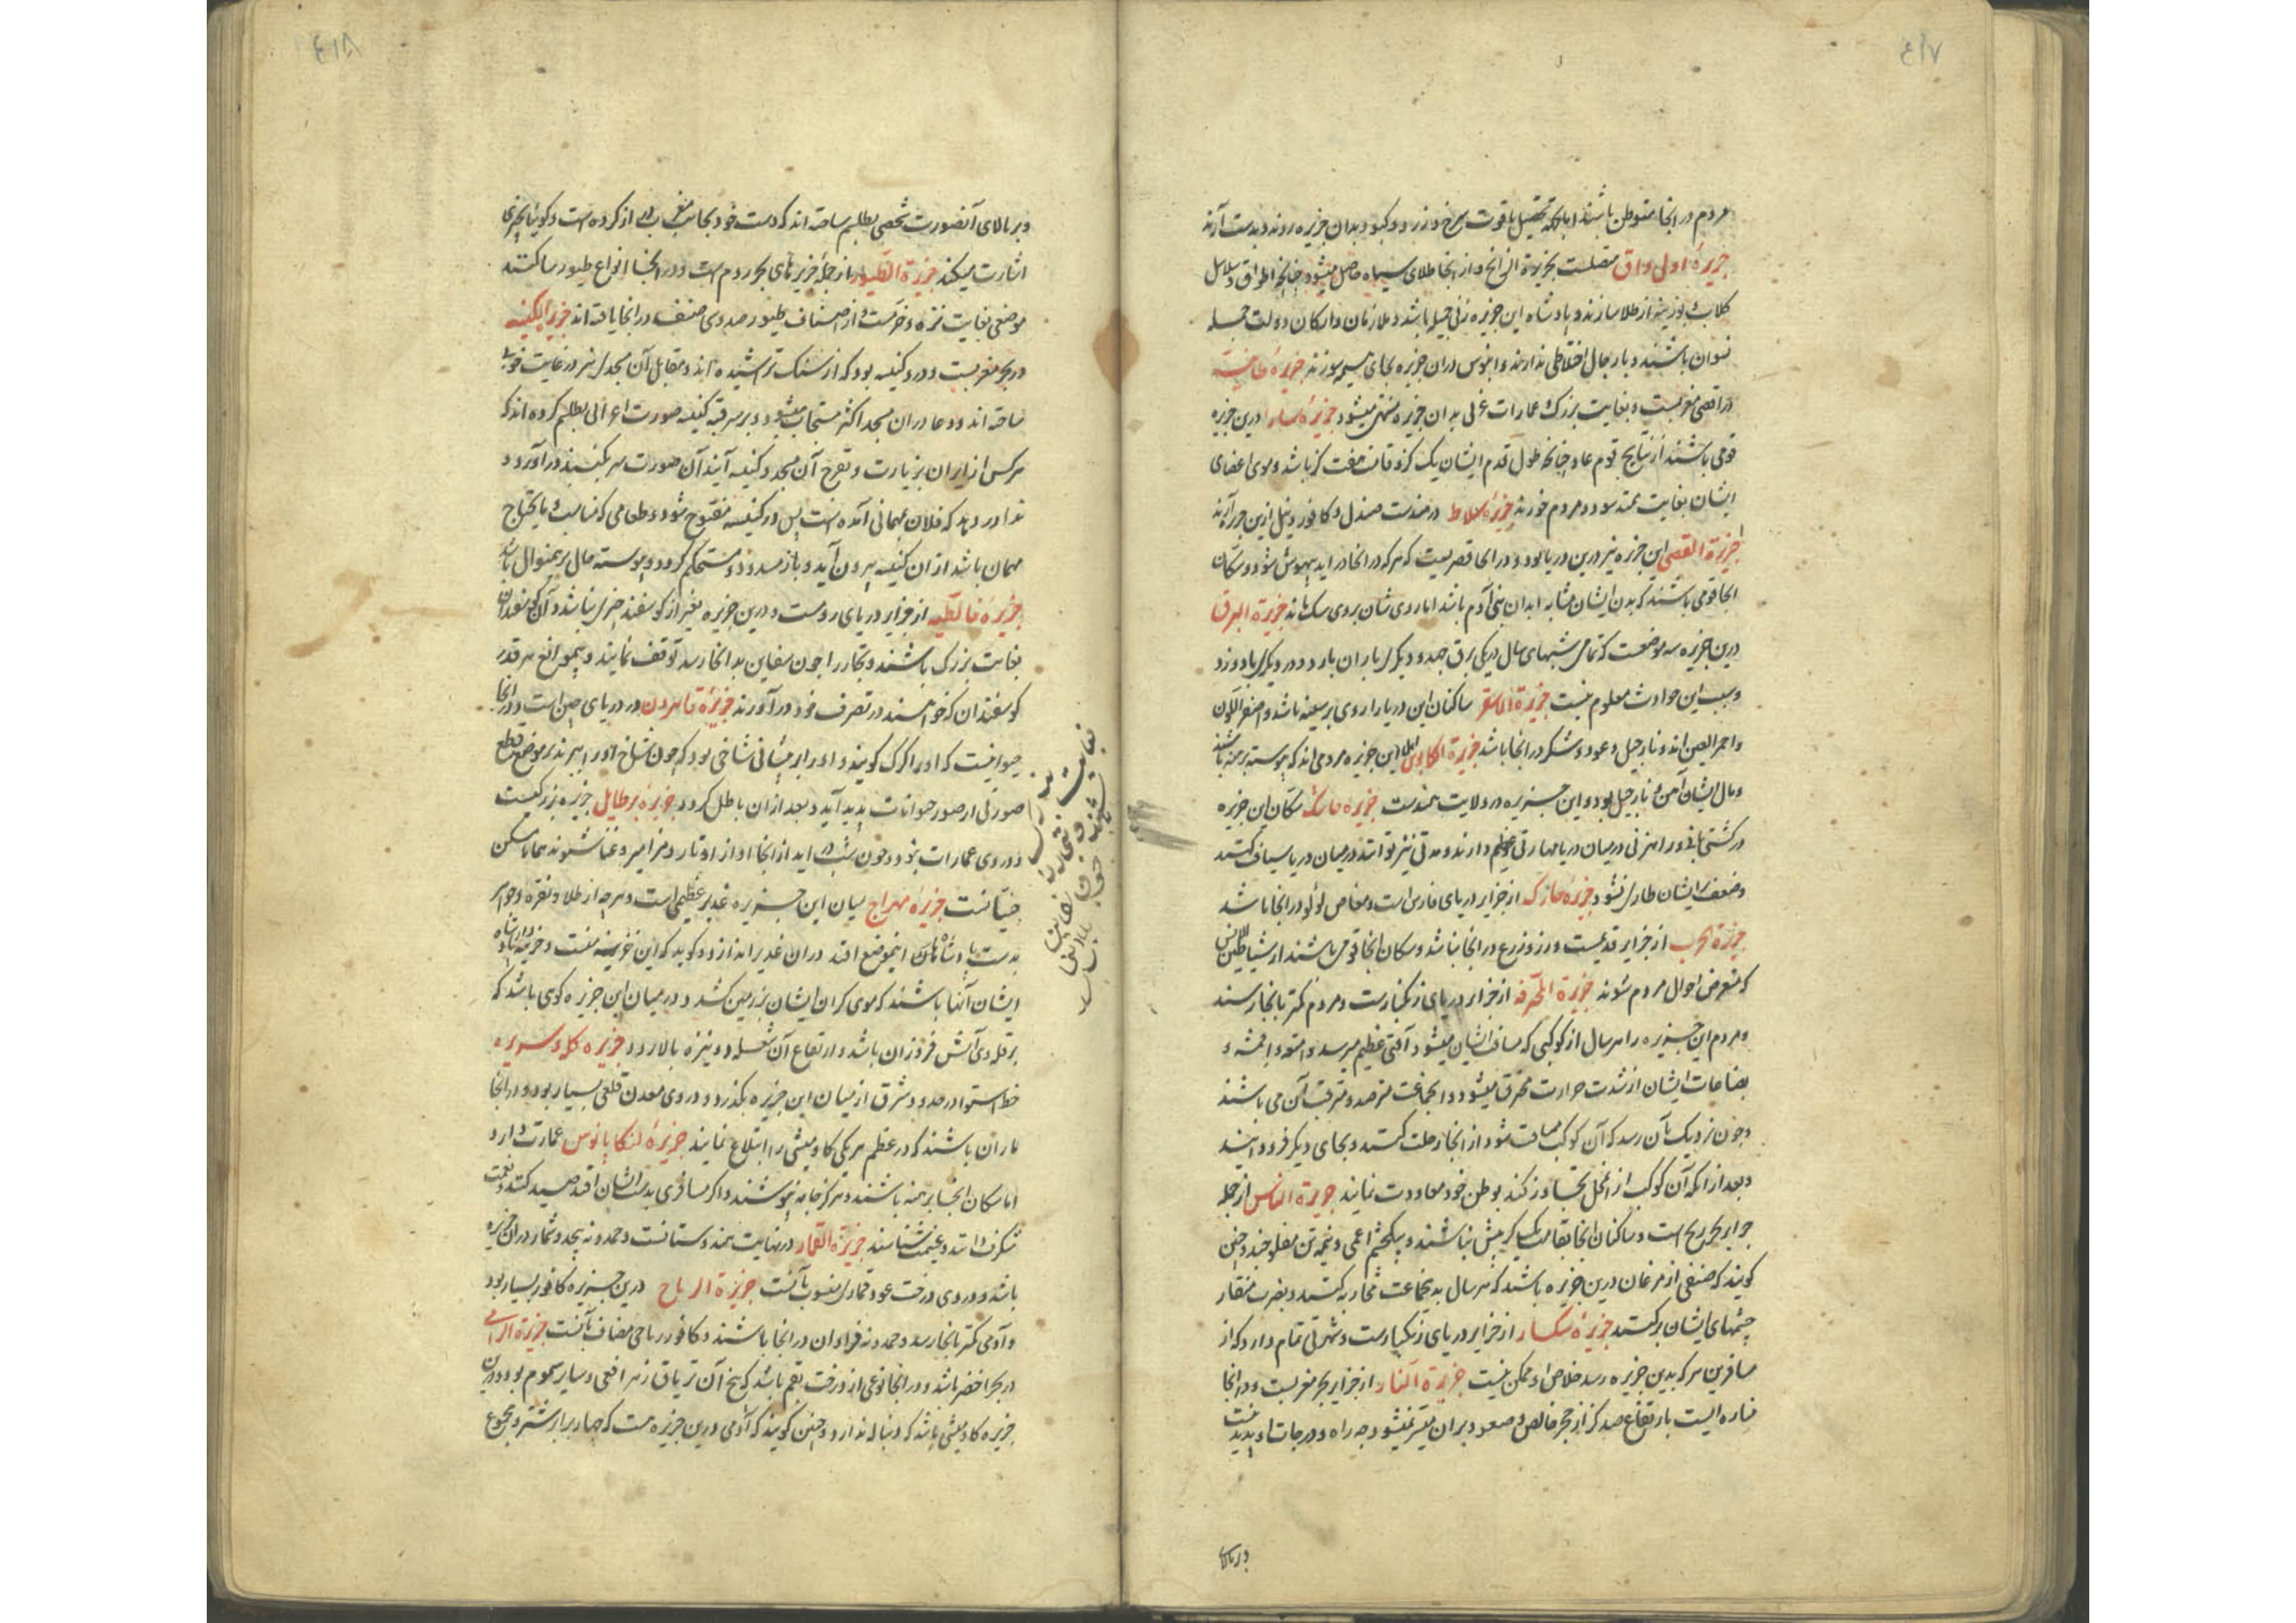 مردم در انجا متوطن باشند اما بجهة تحصیل یاقوت سرخ و زرد و کبود بدان جزیره روند و بدست آرند
جزیرهٔ اول واق متصلست بجزیرة الزانج و از انجا طلای سیاه حاصل میشود چنانچه اطواق و سلاسل
کلاب و بوزینه از طلا سازند و پادشاه این جزیره زنی جمیله باشد و ملازمان و ارکان دولت جمله
نسوان باشند و با رجال اختلاطی ندارند و ابنوس دران جزیره بجای هیمه سوزند جزیرهٔ
در اقصی مغربست و بغایت بزرک و عمارات غربی بدان جزیره منتهی میشود جزیرهٔ سارا درین جزیره
قومی باشند از نتایج قوم عاد چنانچه طول قدم ایشان یک کز و قامت هفت کز باشد و موی اعضای
ایشان بغایت ممتد بود و مردم خورند جزیرهٔ سلاط در هندست صندل و کافور و نیل ازین جزیره آرند
جزیرة القصر این جزیره نیز درین دریا بود و در انجا قصریست که هر که در انجا در اید بیهوش شود و سکان
انجا قومی باشند که بدن ایشان مشابه ابدان بنی آدم باشد اما روی شان بروی سک ماند جزیرة البرق
درین جزیره سه موضعست که تمامی شبهای سال در یکی برق جهد و در دیکری باران بارد و در دیکری باد وزد
و سبب این حوادث معلوم نیست جزیرة ساکنان این دریا را روی بر سینه باشد و اصفر اللون
و احمر العین اند و نارجیل و عود و شکر در انجا باشد جزیرة اهل این جزیره مردمی اند که پیوسته برهنه باشند
و مال ایشان آهن و نارجیل بود و این جزیره در ولایت هندست جزیره سکان این جزیره
در کشتی بانی و راهزنی در میان دریا مهارتی عظیم دارند و مدتی نیز توانند در میان دریا سباحت کنند
و ضعف بر ایشان طاری نشود جزیرهٔ خارک از جزایر دریای فارس است و مغاص لؤلؤ در انجا باشد
جزیرة الحرب از جزایر قدیمست و رز و زرع در انجا نباشد و سکان انجا قومی باشند از شیاطین الانس
که متعرض احوال مردم شوند جزیرة المحرقه از جزایر دریای زنکبارست و مردم کمتر بانجا رسند
و مردم این جزیره را هر سال از کوکبی که مسامت ایشان میشود آفتی عظیم میرسد و امتعه و اقمشه و
بضاعات ایشان از شدت حرارت محترق میشود و انجماعت مترصد و مترقب آن می باشند
و چون نزدیک بآن رسد که آن کوکب مسامت شود از انجا رحلت کنند و بجای دیکر فرود آیند
و بعد از انکه آن کوکب از انمحل تجاوز کند بوطن خود معاودت نمایند جزیرة النسناس از جمله
جزایر بحر زنج است و ساکنان انجا بقامت یک کز بیش نباشند و بیکچشم اعمی و نیمه تن مفلوج و چنین
کویند که صنفی از مرغان درین جزیره باشند که هر سال بدینجماعت محاربه کنند و بضرب منقار
چشمهای ایشان برکنند جزیرهٔ سکسار از جزایر دریای زنکبارست و شهرتی تمام دارد که از
مسافرین هر که بدین جزیره رسد خلاص او ممکن نیست جزیرة النار از جزایر بحر مغربست و در انجا
مناره ایست بارتفاع صد کز از حجر خالص و صعود بران میسر نمیشود چه راه و درجات او پدید نیست
و بر بالای
و بر بالای آنصورت شخصی بطلسم ساخته اند که دست خود بجانب مغرب دراز کرده است و کوئیا بچیزی
اشارت میکند جزیرة الطیور از جمله جزیرهای بحر روم است و در انجا انواع طیور ساکنند
موضعی بغایت نزه و خرمست و از اصناف طیور صد و سی صنف در انجا یافته اند جزیرة الکنیسه
در بحر مغربست و در و کنیسه بود که از سنک تراشیده اند و مقابل آن مسجدی نیز در غایت خوبی
ساخته اند و دعا در ان مسجد اکثر مستجاب میشود و بر سر قبه کنیسه صورت غرابی بطلسم کرده اند که
هر کس از زایران بزیارت و تفرج آن مسجد و کنیسه آیند آن صورت سر بکنبد در آورد و
ندا در دهد که فلان بمهمانی آمده است پس در کنیسه مفتوح شود و طعامی که مناسب و مایحتاج
مهمان باشد از ان کنیسه بیرون آید و باز مسدود و مستحکم کردد و پیوسته حال برین منوال باشد
جزیرهٔ از جزایر دریای روست و درین جزیره بغیر از کوسفند چیزی نباشد و آن کوسفندان
بغایت بزرک باشند و تجار را چون سفاین بدانجا رسد توقف نمایند و بیموانع هر قدر
کوسفندان که خواهند در تصرف خود در آورند جزیرهٔ در دریای چین است و در انجا
حیوانیست که او را کرک کویند و او را بر پیشانی شاخی بود که چون شاخ او را ببرند بر موضع قطع
صورتی از صور حیوانات پدید آید و بعد ازان باطل کردد جزیرهٔ برطایل جزیره بزرکست
و در وی عمارات بود و چون شب در اید از انجا اواز اوتار و مزامیر و غنا شنوند همانا مسکن
جنیانست جزیرهٔ مهراج میان این جزیره غدیر عظیمی است و هر چه از طلا و نقره و جواهر
بدست پادشاهان اینموضع افتد دران غدیر اندازد و کوید که این خزینه منست
ایشان آنها باشند که موی کران ایشان بر زمین کشد و در میان این جزیره کوهی باشد که
بر قله وی آتش فروزان باشد و ارتفاع آن شعله دو نیزه بالا رود جزیره کله و سریره
خط استوا در حدود مشرق از میان این جزیره بکذرد و در وی معدن قلعی بسیار بود و در انجا
ماران باشند که در عظم هر یکی کاو میشی را ابتلاع نمایند جزیرهٔ لنکابالوس عمارت دارد
اما سکان انجا برهنه باشند و هرکز جامه نپوشند و اکر مسافری بدست ایشان افتد صید کنند و نعمت
شکرف دانند و غنیمت شناسند جزیرة القمار در نهایت هندوستانست و حمدونه بیحد و شمار دران جزیره
باشد و در وی درخت عود قماری منسوب بآنست جزیرة الرباح درین جزیره کافور بسیار بود
و آدمی کمتر بانجا رسد و حمدونه فراوان در انجا باشند و کافور رباحی مضاف بآنست جزیرة الرامی
در بحر اخضر باشد و در انجا نوعی از درخت بقم باشد که بیخ آن تریاق زهر افعی و سایر سموم بود و درین
جزیره کاو میشی باشد که دنباله ندارد و چنین کویند که آدمی درین جزیره هست که چهار برابر شتر و مجموع